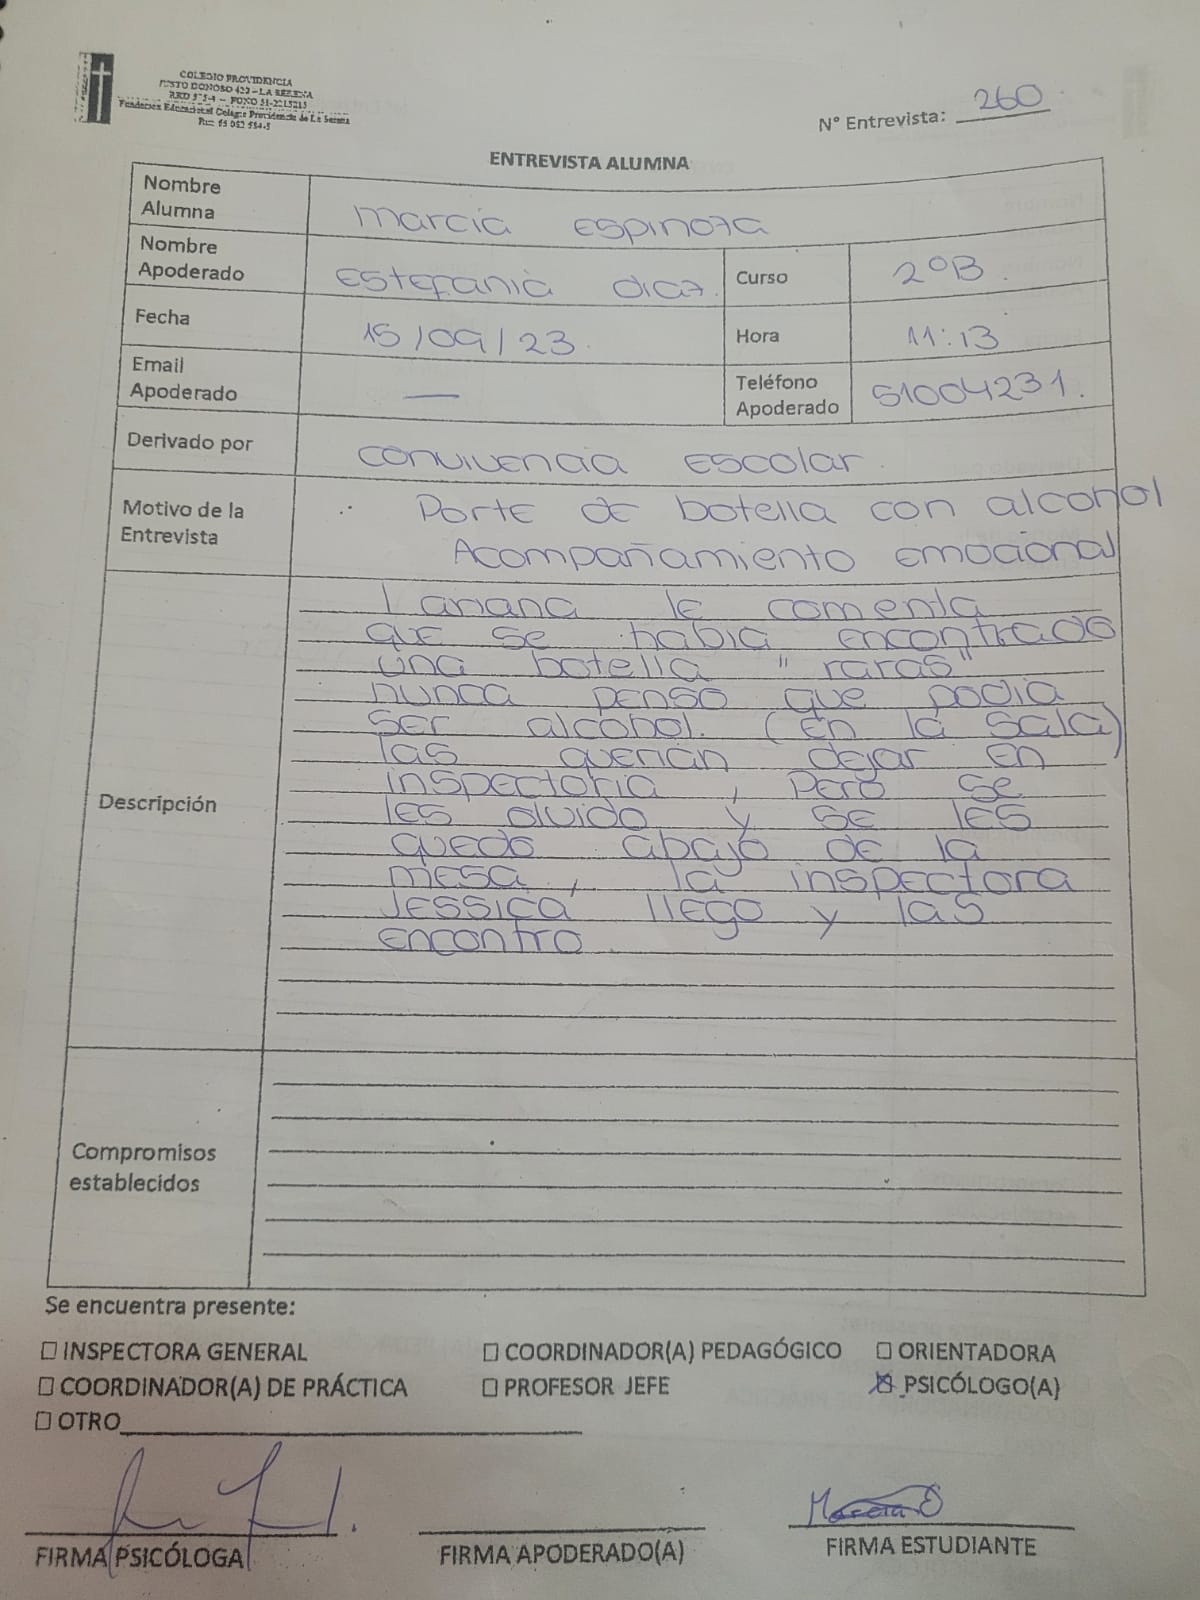 COLEGIO PROVIDENCIA
JUSTO DONOSO 420 - LA SERENA
RBD 575-4 - FONO 51-2215215
Fundación Educacional Colegio Providencia de La Serena
Rut:
N° Entrevista: 260
ENTREVISTA ALUMNA
Nombre Alumna marcia Espinoza
Nombre Apoderado Estefania diaz. Curso 2°B.
Fecha 15/09/23. Hora 11:13
Email Apoderado — Teléfono Apoderado 51004231.
Derivado por convivencia Escolar.
Motivo de la Entrevista Porte de botella con alcohol
Acompañamiento emocional
Descripción
le comenta
que se habia encontrado
una botella "raras"
nunca penso que podia
ser alcohol. (en la sala)
las querian dejar en
inspectoria, pero se
les olvido y se les
quedo abajo de la
mesa, la inspectora
Jessica llego y las
encontro
Compromisos establecidos
Se encuentra presente:
☐ INSPECTORA GENERAL ☐ COORDINADOR(A) PEDAGÓGICO ☐ ORIENTADORA
☐ COORDINADOR(A) DE PRÁCTICA ☐ PROFESOR JEFE ☒ PSICÓLOGO(A)
☐ OTRO
Marcia
FIRMA PSICÓLOGA FIRMA APODERADO(A) FIRMA ESTUDIANTE